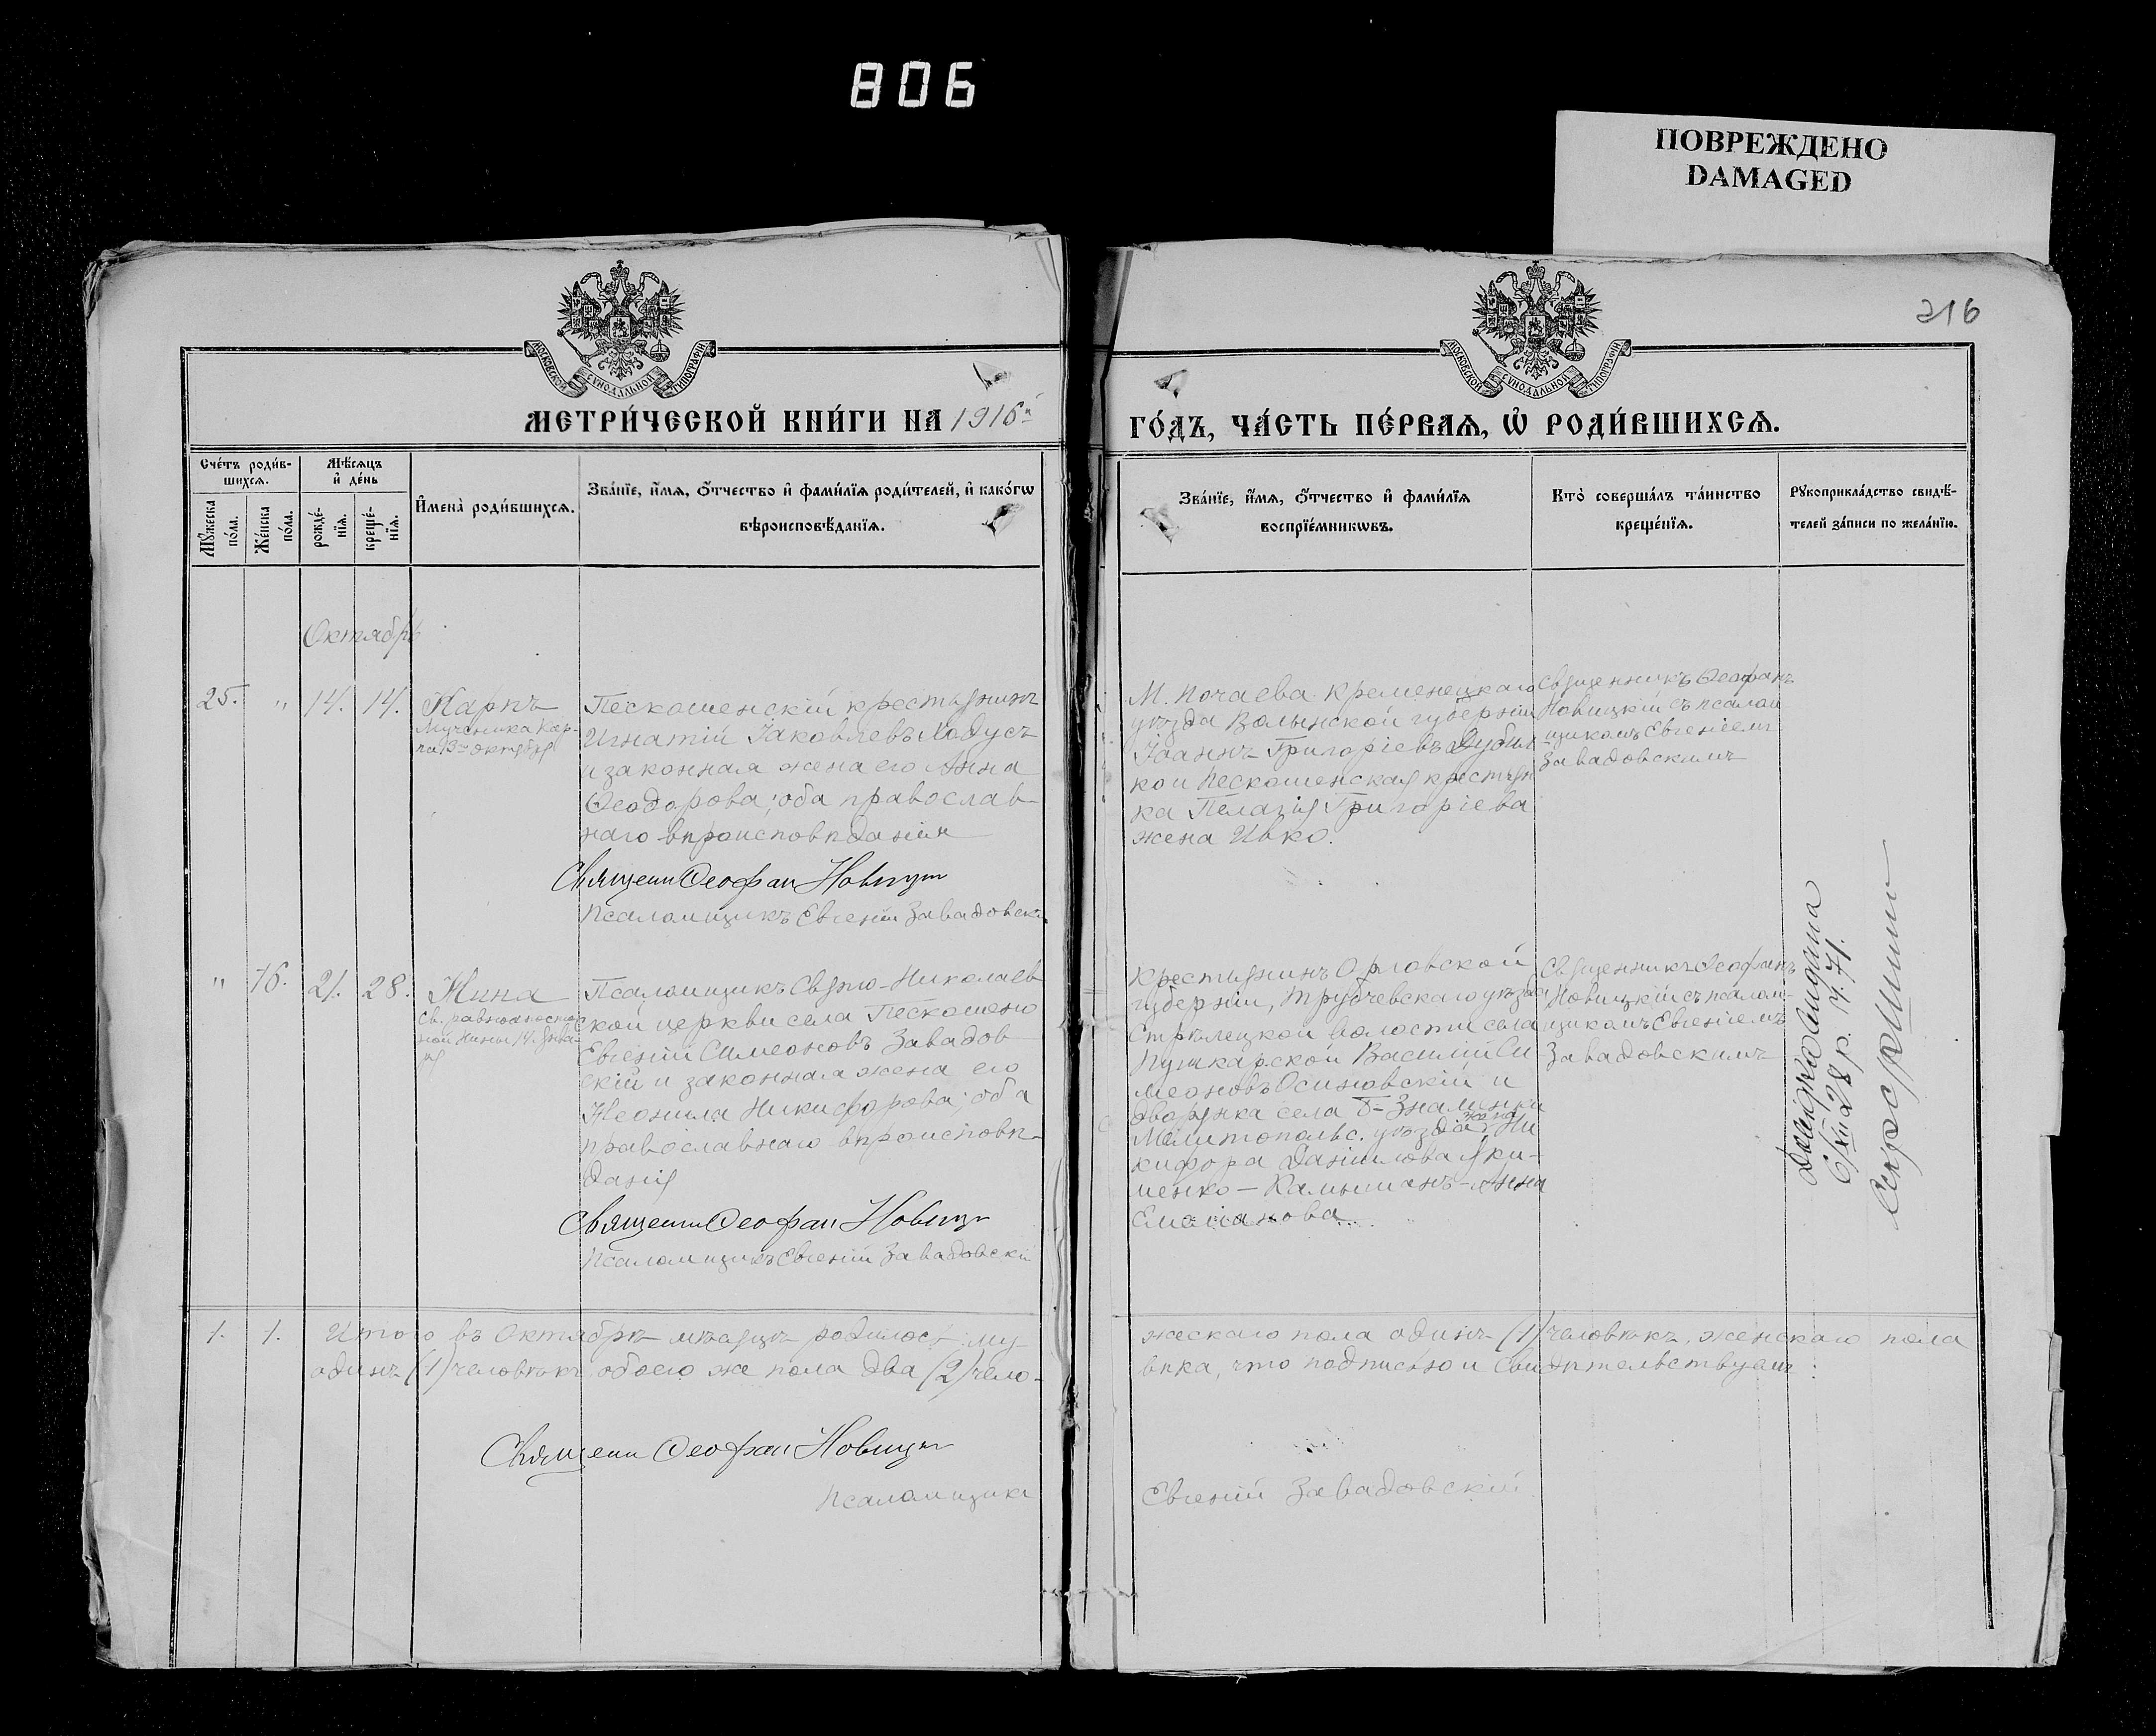 806
ПОВРЕЖДЕНО
DAMAGED
216
МОСКОВСКОЙ СѴНОДАЛЬНОЙ ТИПОГРАФІИ
МОСКОВСКОЙ СѴНОДАЛЬНОЙ ТИПОГРАФІИ
МЕТРИ́ЧЕСКОЙ КНИ́ГИ НА 1916й
ГО́ДЪ, ЧА́СТЬ ПЕ́РВАѦ, Ѡ҆ РОДИ́ВШИХСѦ.
Сче́тъ роди́в-
шихсѧ.
Мѣ́сѧцъ
и҆ де́нь
Мꙋ́жеска
по́ла.
Же́нска
по́ла.
рожде́-
нїѧ.
креще́-
нїѧ.
И҆мена̀ роди́вшихсѧ.
Зва́нїе, и҆́мѧ, о҆́тчество и҆ фами́лїѧ роди́телей, и҆ како́гѡ
вѣроисповѣ́данїѧ.
Зва́нїе, и҆́мѧ, о҆́тчество и҆ фами́лїѧ
воспрїе́мникѡвъ.
Кто̀ соверша́лъ та́инство
креще́нїѧ.
Рꙋкоприкла́дство свидѣ́-
телей за́писи по жела́нїю.
Октябрь
25. " 14. 14. Карпъ
Мученика Кар-
па 13го октября
Пескошенскій крестьянинъ
Игнатій Іаковлевъ Лодусъ
и законная жена его Анна
Ѳеодорова; оба православ-
наго вѣроисповѣданія
Священ Ѳеофан Новицк
Псаломщикъ Евгеній Завадовскі
М. Почаева Кременецкаго
уѣзда Волынской губерніи
Іоаннъ Григоріевъ
и Пескошенская крестьян
ка Пелагія Григоріева
жена Ивко.
Священникъ Ѳеофанъ
Новицкій съ псалом
щикомъ Евгеніемъ
Завадовскимъ
" 16. 21. 28. Нина
Св. равноапостол
ной Нины 14. Янва-
ря
Псаломщикъ Свято-Николаев
кой церкви села Пескошено
Евгеній Симеоновъ Завадов
скій и законная жена его
Неонила Никифорова; оба
православнаго вѣроисповѣ-
данія
Священ Ѳеофан Новицк
Псаломщикъ Евгеній Завадовскій
Крестьянинъ Орловской
губерніи, Трубчевскаго уѣзда
Стрѣлецкой волости села
Пушкарской Василій Си
меоновъ Осиновскій и
дворянка села Б-Знаменки
Мелитопольс. уѣзда жена Ни
кифора Даніилова Яки-
менко-Камышанъ-Анна
Емеліанова
Священникъ Ѳеофанъ
Новицкій съ псалом-
щикомъ Евгеніемъ
Завадовскимъ
Довідка видана
28 р.
1. 1. Итого въ Октябрѣ мѣсяцѣ родилось: му-
жескаго пола одинъ (1) человѣкъ, женскаго пола
одинъ (1) человѣкъ, обоего же пола два (2) чело-
вѣка, что подписью и свидѣтельствуемъ:
Священ Ѳеофан Новицк
Псаломщикъ Евгеній Завадовскій